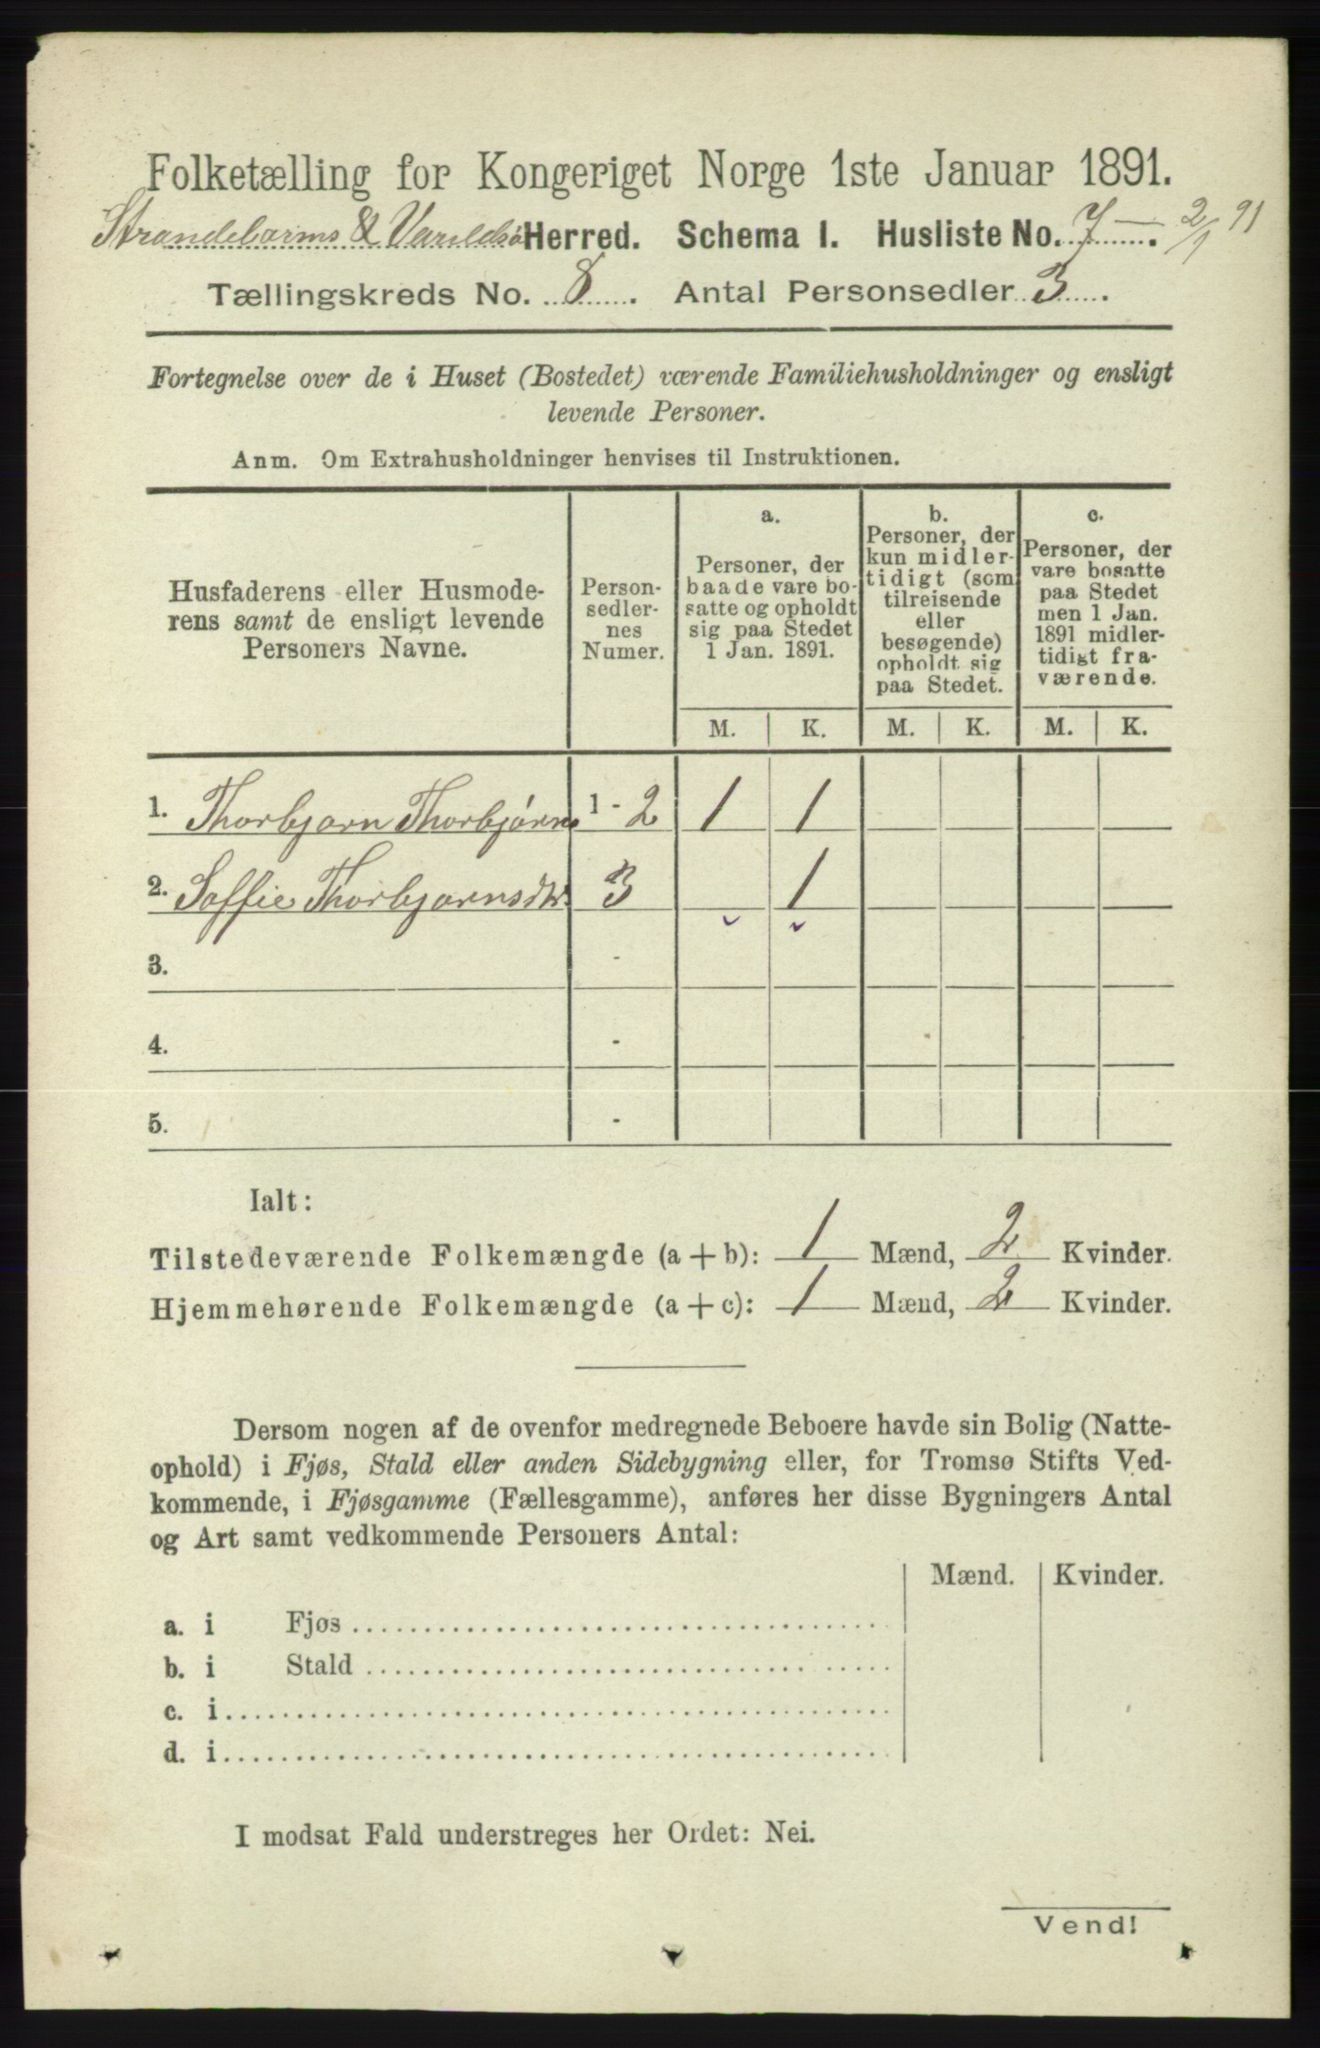 Folketælling for Kongeriget Norge 1ste Januar 1891.
Strandebarms & Varildsø Herred. Schema I. Husliste No. 7 — . 2/1 91
Tællingskreds No. 8 . Antal Personsedler 3 .
Fortegnelse over de i Huset (Bostedet) værende Familiehusholdninger og ensligt
levende Personer.
Anm. Om Extrahusholdninger henvises til Instruktionen.
Husfaderens eller Husmode-
rens samt de ensligt levende
Personers Navne.
Person-
sedler-
nes
Numer.
a.
Personer, der
baade vare bo-
satte og opholdt
sig paa Stedet
1 Jan. 1891.
b.
Personer, der
kun midler-
tidigt (som
tilreisende
eller
besøgende)
opholdt sig
paa Stedet.
c.
Personer, der
vare bosatte
paa Stedet
men 1 Jan.
1891 midler-
tidigt fra-
værende.
M. K. M. K. M. K.
1. Thorbjørn Thorbjørns 1 - 2 1 1
2. Soffie Thorbjørnsdtr. 3 1
3. -
4. -
5. -
Ialt:
Tilstedeværende Folkemængde (a + b): 1 Mænd, 2 Kvinder.
Hjemmehørende Folkemængde (a + c): 1 Mænd, 2 Kvinder.
Dersom nogen af de ovenfor medregnede Beboere havde sin Bolig (Natte-
ophold) i Fjøs, Stald eller anden Sidebygning eller, for Tromsø Stifts Ved-
kommende, i Fjøsgamme (Fællesgamme), anføres her disse Bygningers Antal
og Art samt vedkommende Personers Antal:
Mænd. Kvinder.
a. i Fjøs
b. i Stald
c. i
d. i
I modsat Fald understreges her Ordet: Nei.
Vend!